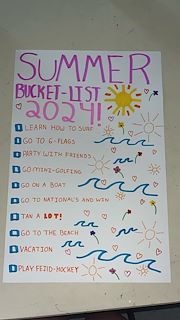 SUMMER
BUCKET-LIST
2024!
LEARN HOW TO SURF
GO TO 6-FLAGS
PARTY WITH FRIENDS
GO MINI-GOLFING
GO ON A BOAT
GO TO NATIONALS AND WIN
TAN A LOT!
GO TO THE BEACH
VACATION
PLAY FEILD-HOCKEY